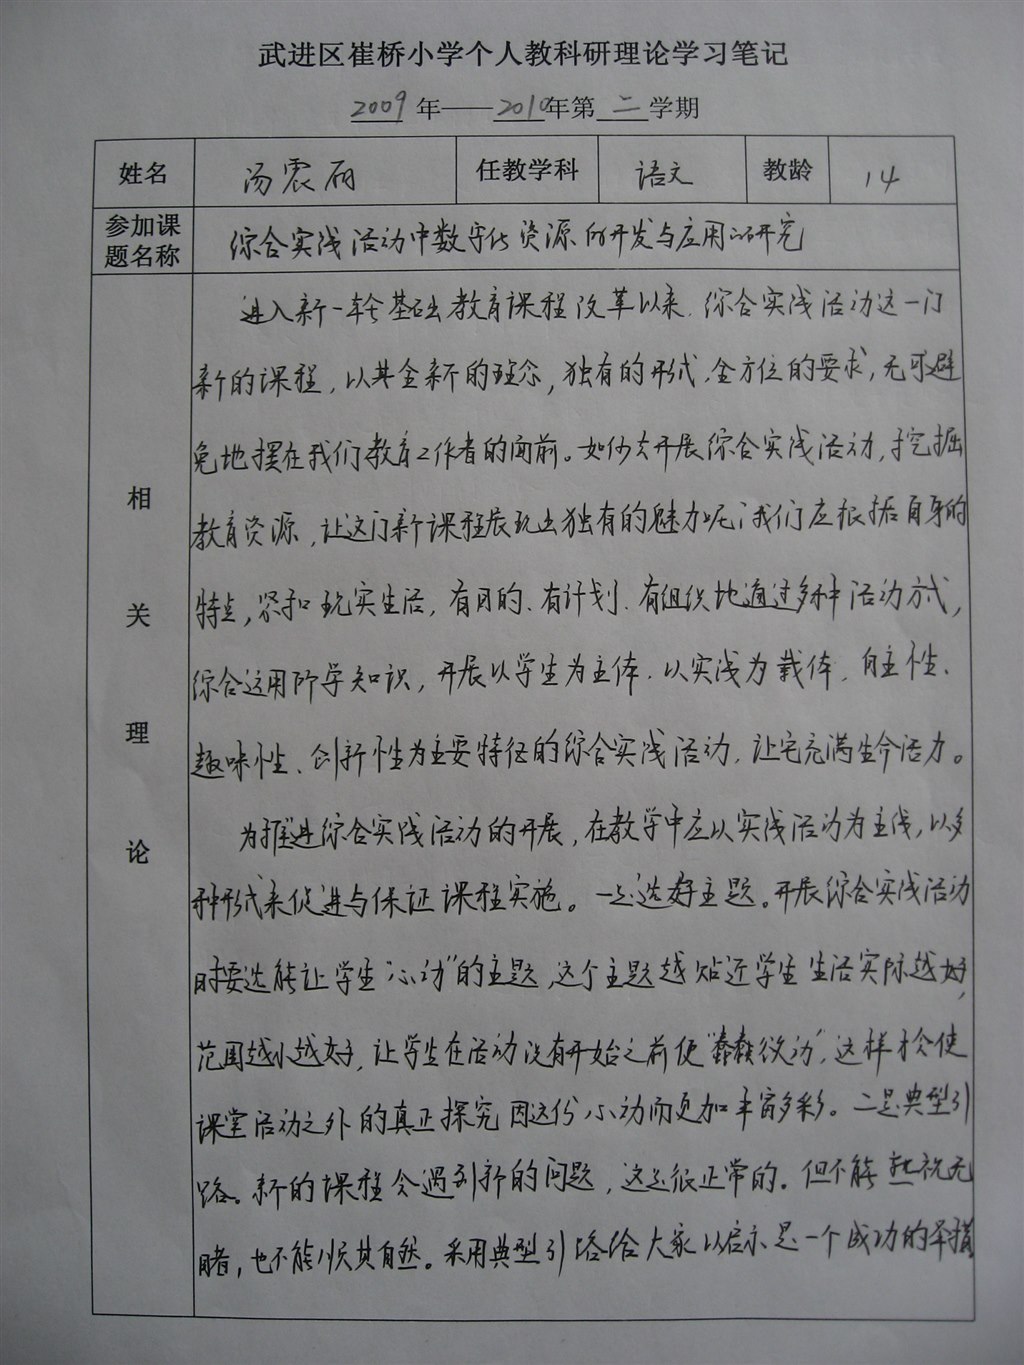 武进区崔桥小学个人教科研理论学习笔记
2009 年——2010年第 二 学期
姓名 汤震雨 任教学科 语文 教龄 14
参加课题名称 综合实践活动中数字化资源的开发与应用的研究
相关理论
进入新一轮基础教育课程改革以来，综合实践活动这一门
新的课程，以其全新的理念，独有的形式，全方位的要求，无可避
免地摆在我们教育工作者的面前。如何去开展综合实践活动，挖掘
教育资源，让这门新课程展现出独有的魅力呢？我们应根据自身的
特点，紧扣现实生活，有目的、有计划、有组织地通过多种活动方式，
综合运用所学知识，开展以学生为主体，以实践为载体，自主性、
趣味性、创新性为主要特征的综合实践活动，让它充满生命活力。
为推进综合实践活动的开展，在教学中应以实践活动为主线，以多
种形式来促进与保证课程实施。一是选好主题。开展综合实践活动
时要选能让学生“心动”的主题，这个主题越贴近学生生活实际越好，
范围越小越好，让学生在活动没有开始之前便“蠢蠢欲动”，这样才会使
课堂活动之外的真正探究因这份心动而更加丰富多彩。二是典型引
路。新的课程会遇到新的问题，这是很正常的。但不能熟视无
睹，也不能顺其自然。采用典型引路给大家以启示是一个成功的举措